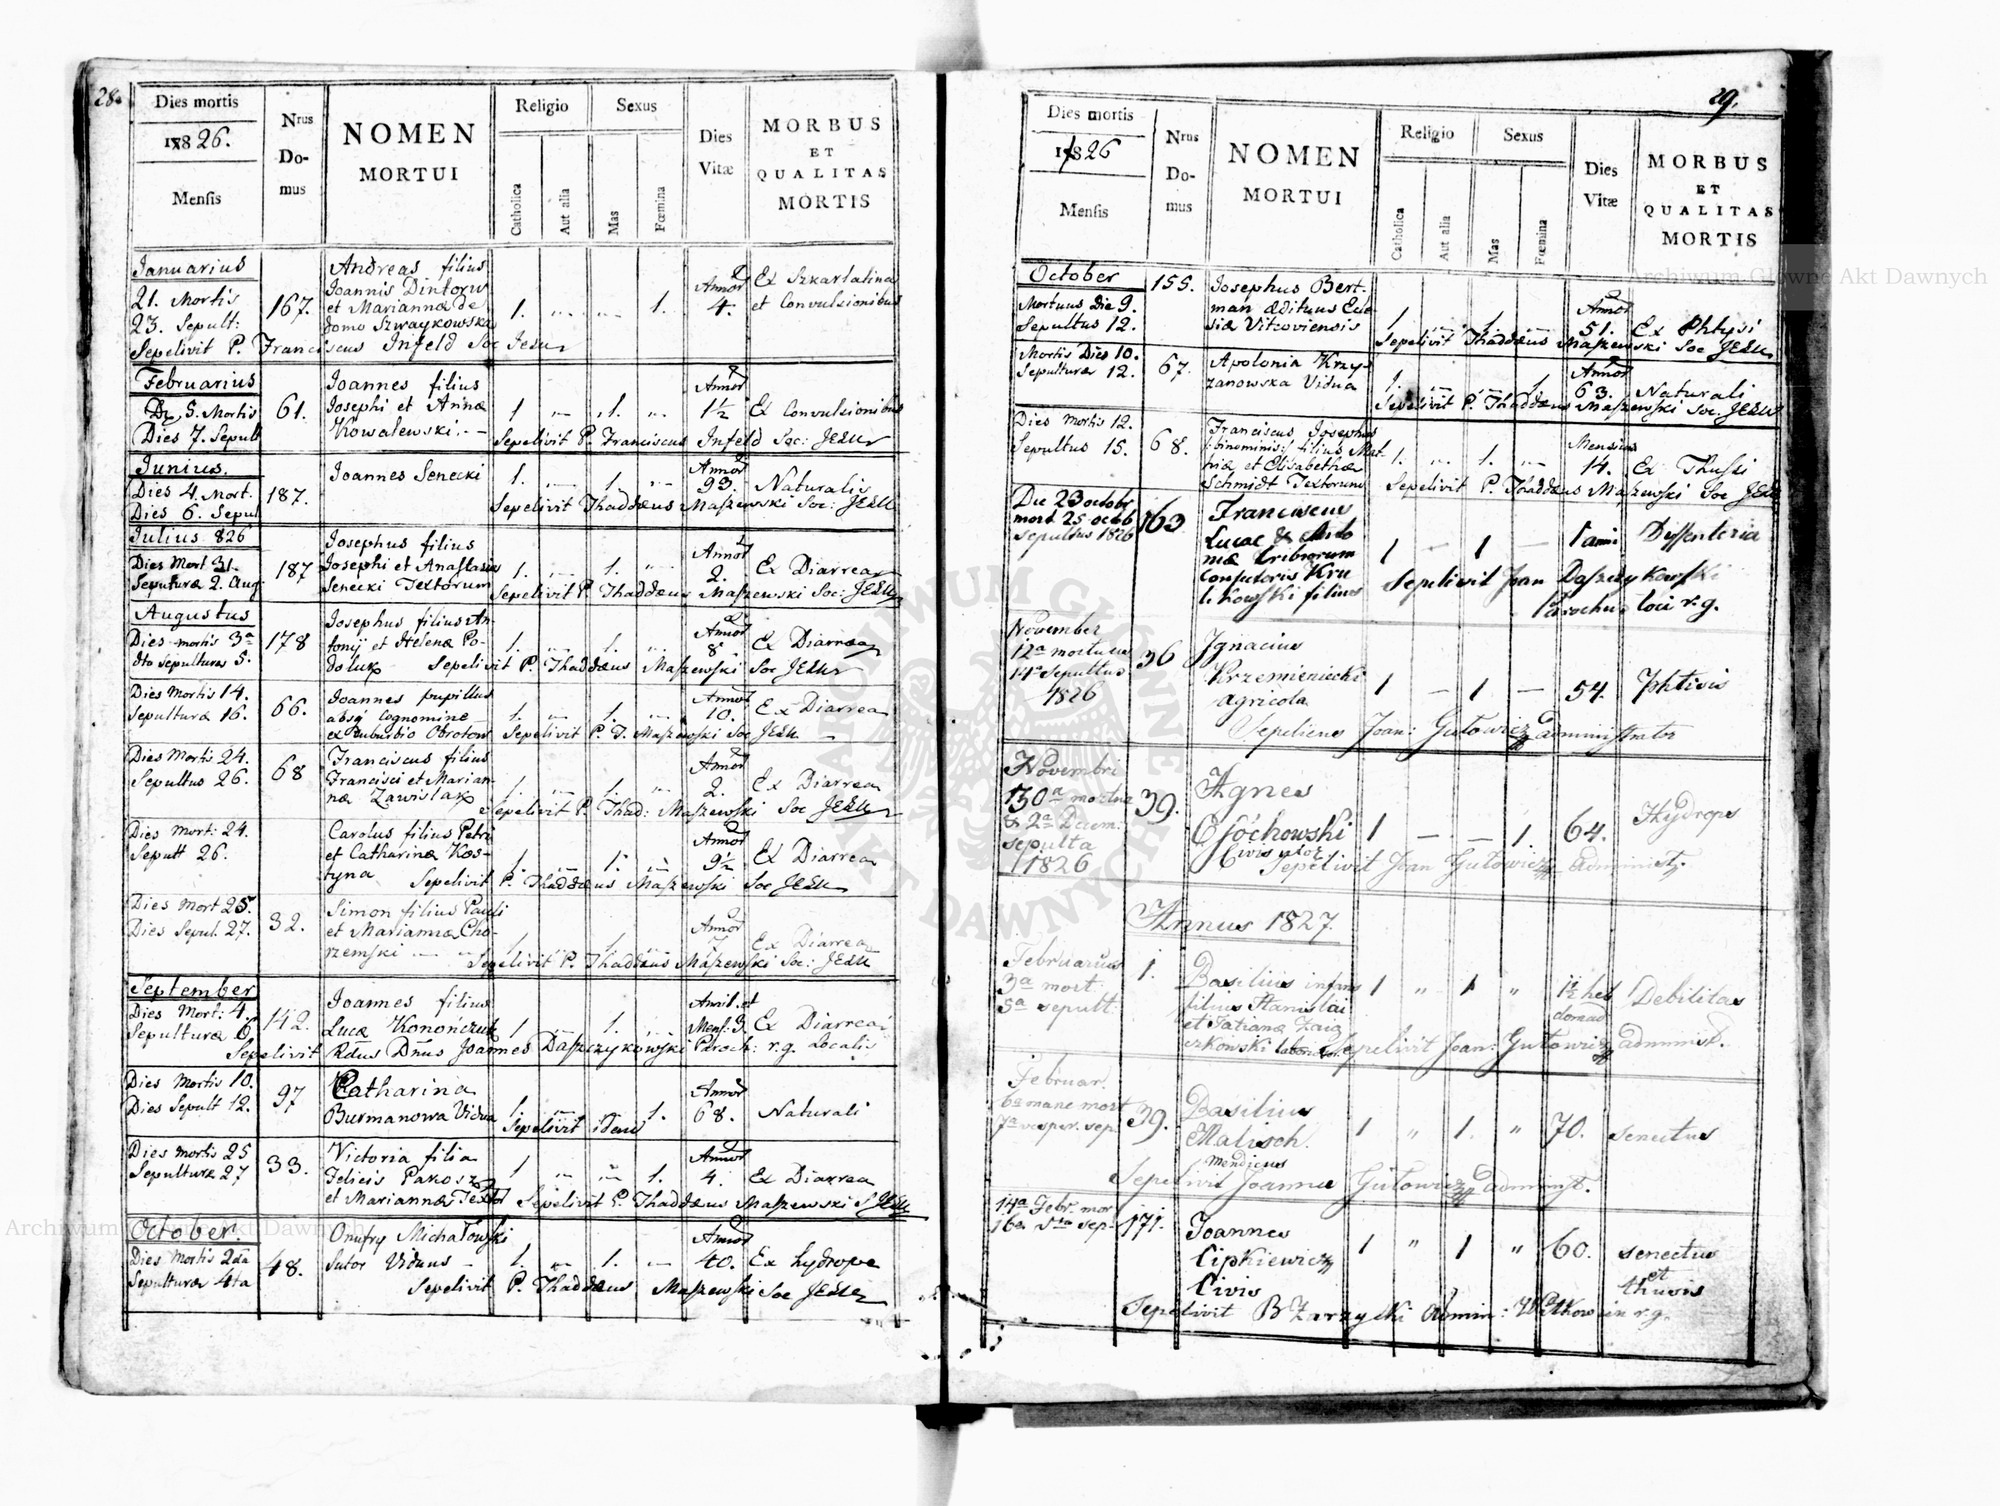 28.
Dies mortis
1826.
Mensis
Nrus
Do-
mus
NOMEN
MORTUI
Religio
Catholica
Aut alia
Sexus
Mas
Fœmina
Dies
Vitæ
MORBUS
ET
QUALITAS
MORTIS
Januarius
21. Mortis
23. Sepult:
167.
Andreas filius
Joannis Dintorw
et Mariannæ de
domo Szwaykowska
1. 1.
Annor
4.
Ex Szkarlatina
et Convulsionibus
Sepelivit P. Franciscus Infeld Soc Jesu
Februarius
5. Mortis
Dies 7. Sepult
61.
Joannes filius
Josephi et Annæ
Kowalewski. -
1 1.
Annor
1½
Ex Convulsionibus
Sepelivit P. Franciscus Infeld Soc: JESU
Junius.
Dies 4. Mort.
Dies 6. Sepul
187.
Joannes Senecki
1. 1.
Annor
93.
Naturalis
Sepelivit Thaddæus Maszewski Soc: JESU
Julius 826
Dies Mort 31.
Sepulturæ 2. Aug
187
Josephus filius
Josephi et Anastasiæ
Senecki Textorum
1. 1.
Annor
2.
Ex Diarrea
Sepelivit P. Thaddæus Maszewski Soc: JESU
Augustus
Dies mortis 3a
dto sepulturæ 5.
178
Josephus filius An-
tonij et Helenæ Po-
doluk
1. 1.
Annor
8.
Ex Diarræa
Sepelivit P. Thaddæus Maszewski Soc JESU
Dies Mortis 14.
Sepulturæ 16.
66.
Joannes pupillus
absq cognomine
ex suburbio Obroton
1. 1.
Annor
10.
Ex Diarrea
Sepelivit P. T. Maszewski Soc JESU
Dies Mortis 24.
Sepultus 26.
68
Franciscus filius
Francisci et Marian-
næ Zawislak
1. 1.
Annor
2.
Ex Diarrea
Sepelivit P. Thad: Maszewski Soc JESU
Dies Mort: 24.
Sepult 26.
Carolus filius Petri
et Catharinæ Kos-
tyna
1. 1.
Annor
9½
Ex Diarrea
Sepelivit P. Thaddæus Maszewski Soc JESU
Dies Mort 25.
Dies Sepul. 27.
32.
Simon filius Pauli
et Mariannæ Cho-
rzemski
1 1.
Annor
7
Ex Diarrea
Sepelivit P. Thaddæus Maszewski Soc: JESU
September
Dies Mort: 4.
Sepulturæ 6
142.
Joannes filius
Lucæ Konończuk
1 1.
Anni. et
Mens: 3.
Ex Diarrea
Sepelivit Rdus Dnus Joannes Daszczykowski Paroch: r.g. Localis
Dies Mortis 10.
Dies Sepult 12.
97
Catharina
Burmanowa Vidua
1. 1.
Annor
68.
Naturali
Sepelivit idem
Dies mortis 25
Sepulturæ 27
33.
Victoria filia
Felicis Pakosz
et Mariannæ Textor
1 1.
Annor
4.
Ex Diarrea
Sepelivit P. Thaddæus Maszewski S JESU
October.
Dies Mortis 2da
Sepulturæ 4ta
48.
Onufry Michałowski
Sutor Viduus -
1. 1.
Annor
40.
Ex hydrope
Sepelivit P. Thaddæus Maszewski Soc JESU
29.
Dies mortis
1826
Mensis
Nrus
Do-
mus
NOMEN
MORTUI
Religio
Catholica
Aut alia
Sexus
Mas
Fœmina
Dies
Vitæ
MORBUS
ET
QUALITAS
MORTIS
October
Mortuus die 9.
Sepultus 12.
155.
Josephus Bert-
man Ædituus Ecle-
siæ Vitzoviensis
1 1
Annor
51.
Ex Phtysi
Sepelivit Thaddæus Maszewski Soc JESU
Mortis Dies 10.
Sepulturæ 12.
67.
Apolonia Krzy-
zanowska Vidua
1. 1
Annor
63.
Naturali
Sepelivit P. Thaddæus Maszewski Soc. JESU
Dies Mortis 12.
Sepultus 15.
68.
Franciscus Josephus
binominis filius Mat-
hiæ et Elisabethæ
Schmidt Textorum
1. 1.
Mensium
14.
Ex Thussi
Sepelivit P. Thaddæus Maszewski Soc JESU
Die 23 octobr
mort 25 octob
sepultus 1826
163
Franciscus
Lucae & Anto
niæ Cribrorum
Consutoris Kru
likowski filius
1 1
1 anni
Dissenteria
Sepelivit Joan Daszczykowski
Parochus loci r.g.
November
12a mortuus
14a sepultus
1826
36
Ignacius
Krzemieniecki
agricola
1 1
54.
Phtisis
Sepeliens Joan: Gutowicz administrator
Novembri
30a mortua
& 2a Decem:
sepulta
1826
39.
Agnes
Civis uxor
1 1.
64.
Hydrops
Sepelivit Joan Gutowicz administ.
Annus 1827.
Februarius
3a mort:
5a sepult.
1.
Basilius infans
filius Stanislai
et Tatianæ Zaią
czkowski
1 1
1½ heb
domad
Debilitas
Sepelivit Joan: Gutowicz administ.
Februar.
6a mane mort
7a vesper. sep.
39.
Basilius
Malisch.
mendicus
1 1.
70.
senectus
Sepelivit Joannes Gutowicz administ.
14a Febr. mor
16a sep.
171.
Joannes
Lipkiewicz
Civis
1 1
60.
senectus
et
thusis
Sepelivit B Zarzycki Admin: Witkow in r.g.
ARCHIWUM GŁÓWNE AKT DAWNYCH
Archiwum Główne Akt Dawnych
Archiwum Główne Akt Dawnych